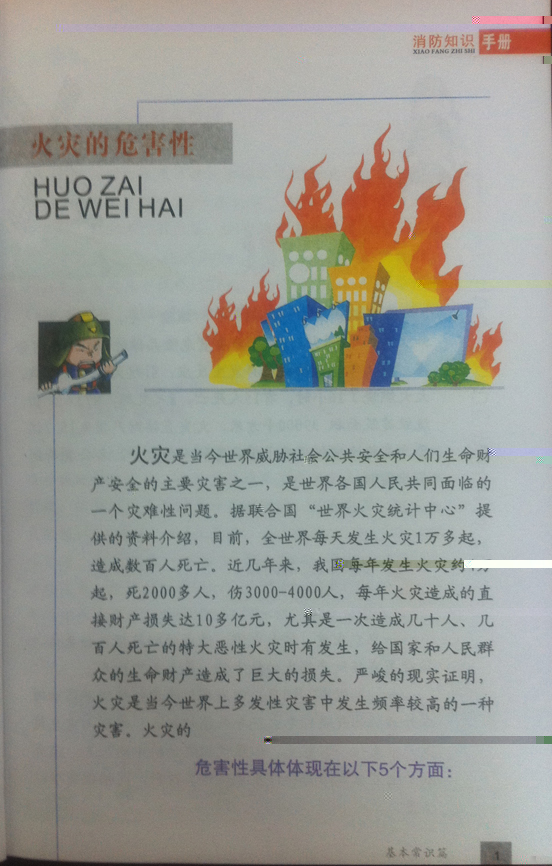 消防知识 手册
XIAO FANG ZHI SHI
火灾的危害性
HUO ZAI
DE WEI HAI
火灾是当今世界威胁社会公共安全和人们生命财
产安全的主要灾害之一，是世界各国人民共同面临的
一个灾难性问题。据联合国“世界火灾统计中心”提
供的资料介绍，目前，全世界每天发生火灾1万多起，
造成数百人死亡。近几年来，我国每年发生火灾约4万
起，死2000多人，伤3000-4000人，每年火灾造成的直
接财产损失达10多亿元，尤其是一次造成几十人、几
百人死亡的特大恶性火灾时有发生，给国家和人民群
众的生命财产造成了巨大的损失。严峻的现实证明，
火灾是当今世界上多发性灾害中发生频率较高的一种
灾害。火灾的
危害性具体体现在以下5个方面：
基本常识篇 1